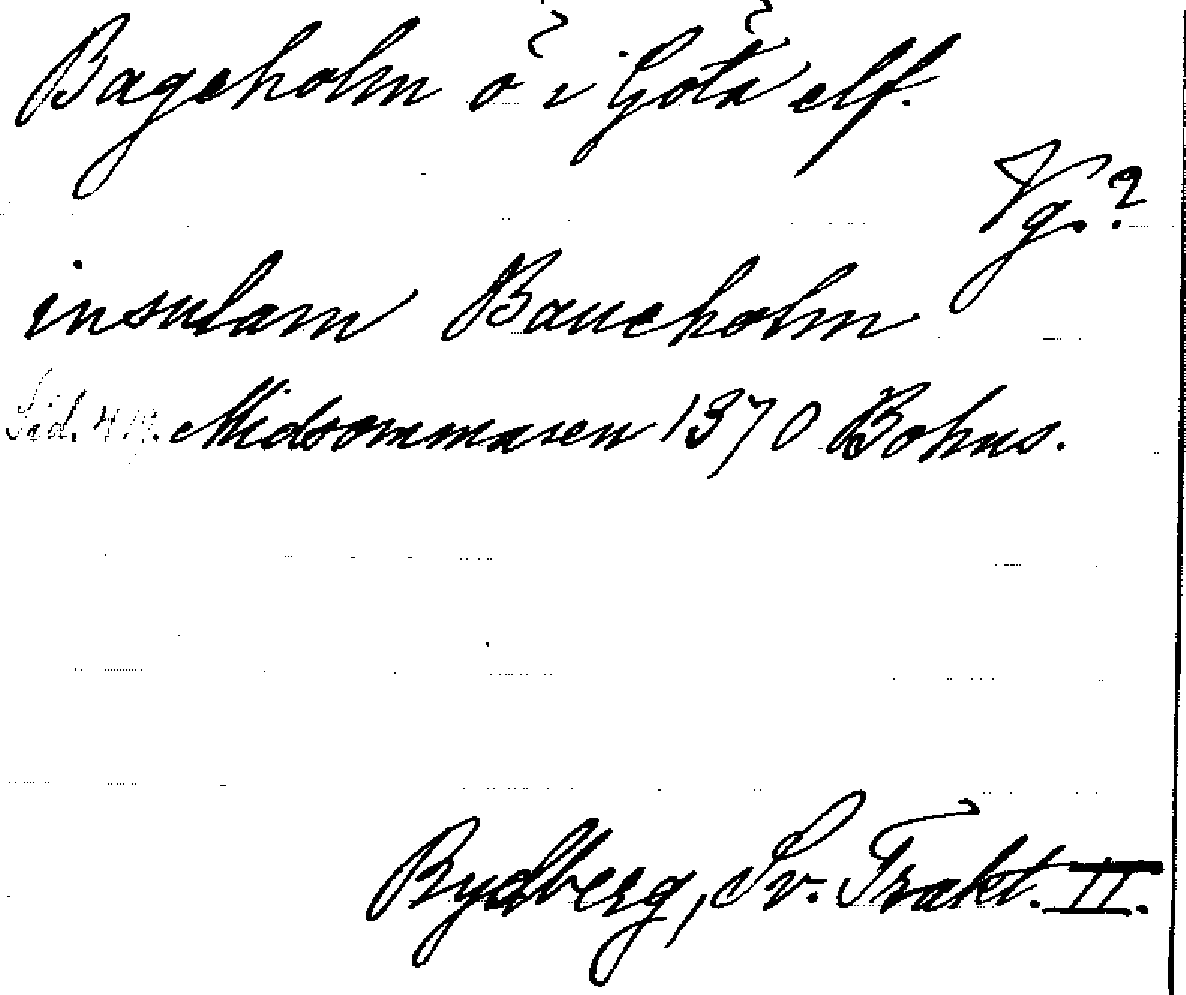 Bageholm ö i Göta elf.
Vg.?
insulam Baueholm
Sid. 411. Midsommaren 1370 Bohus.
Rydberg, Sv. Trakt. II.